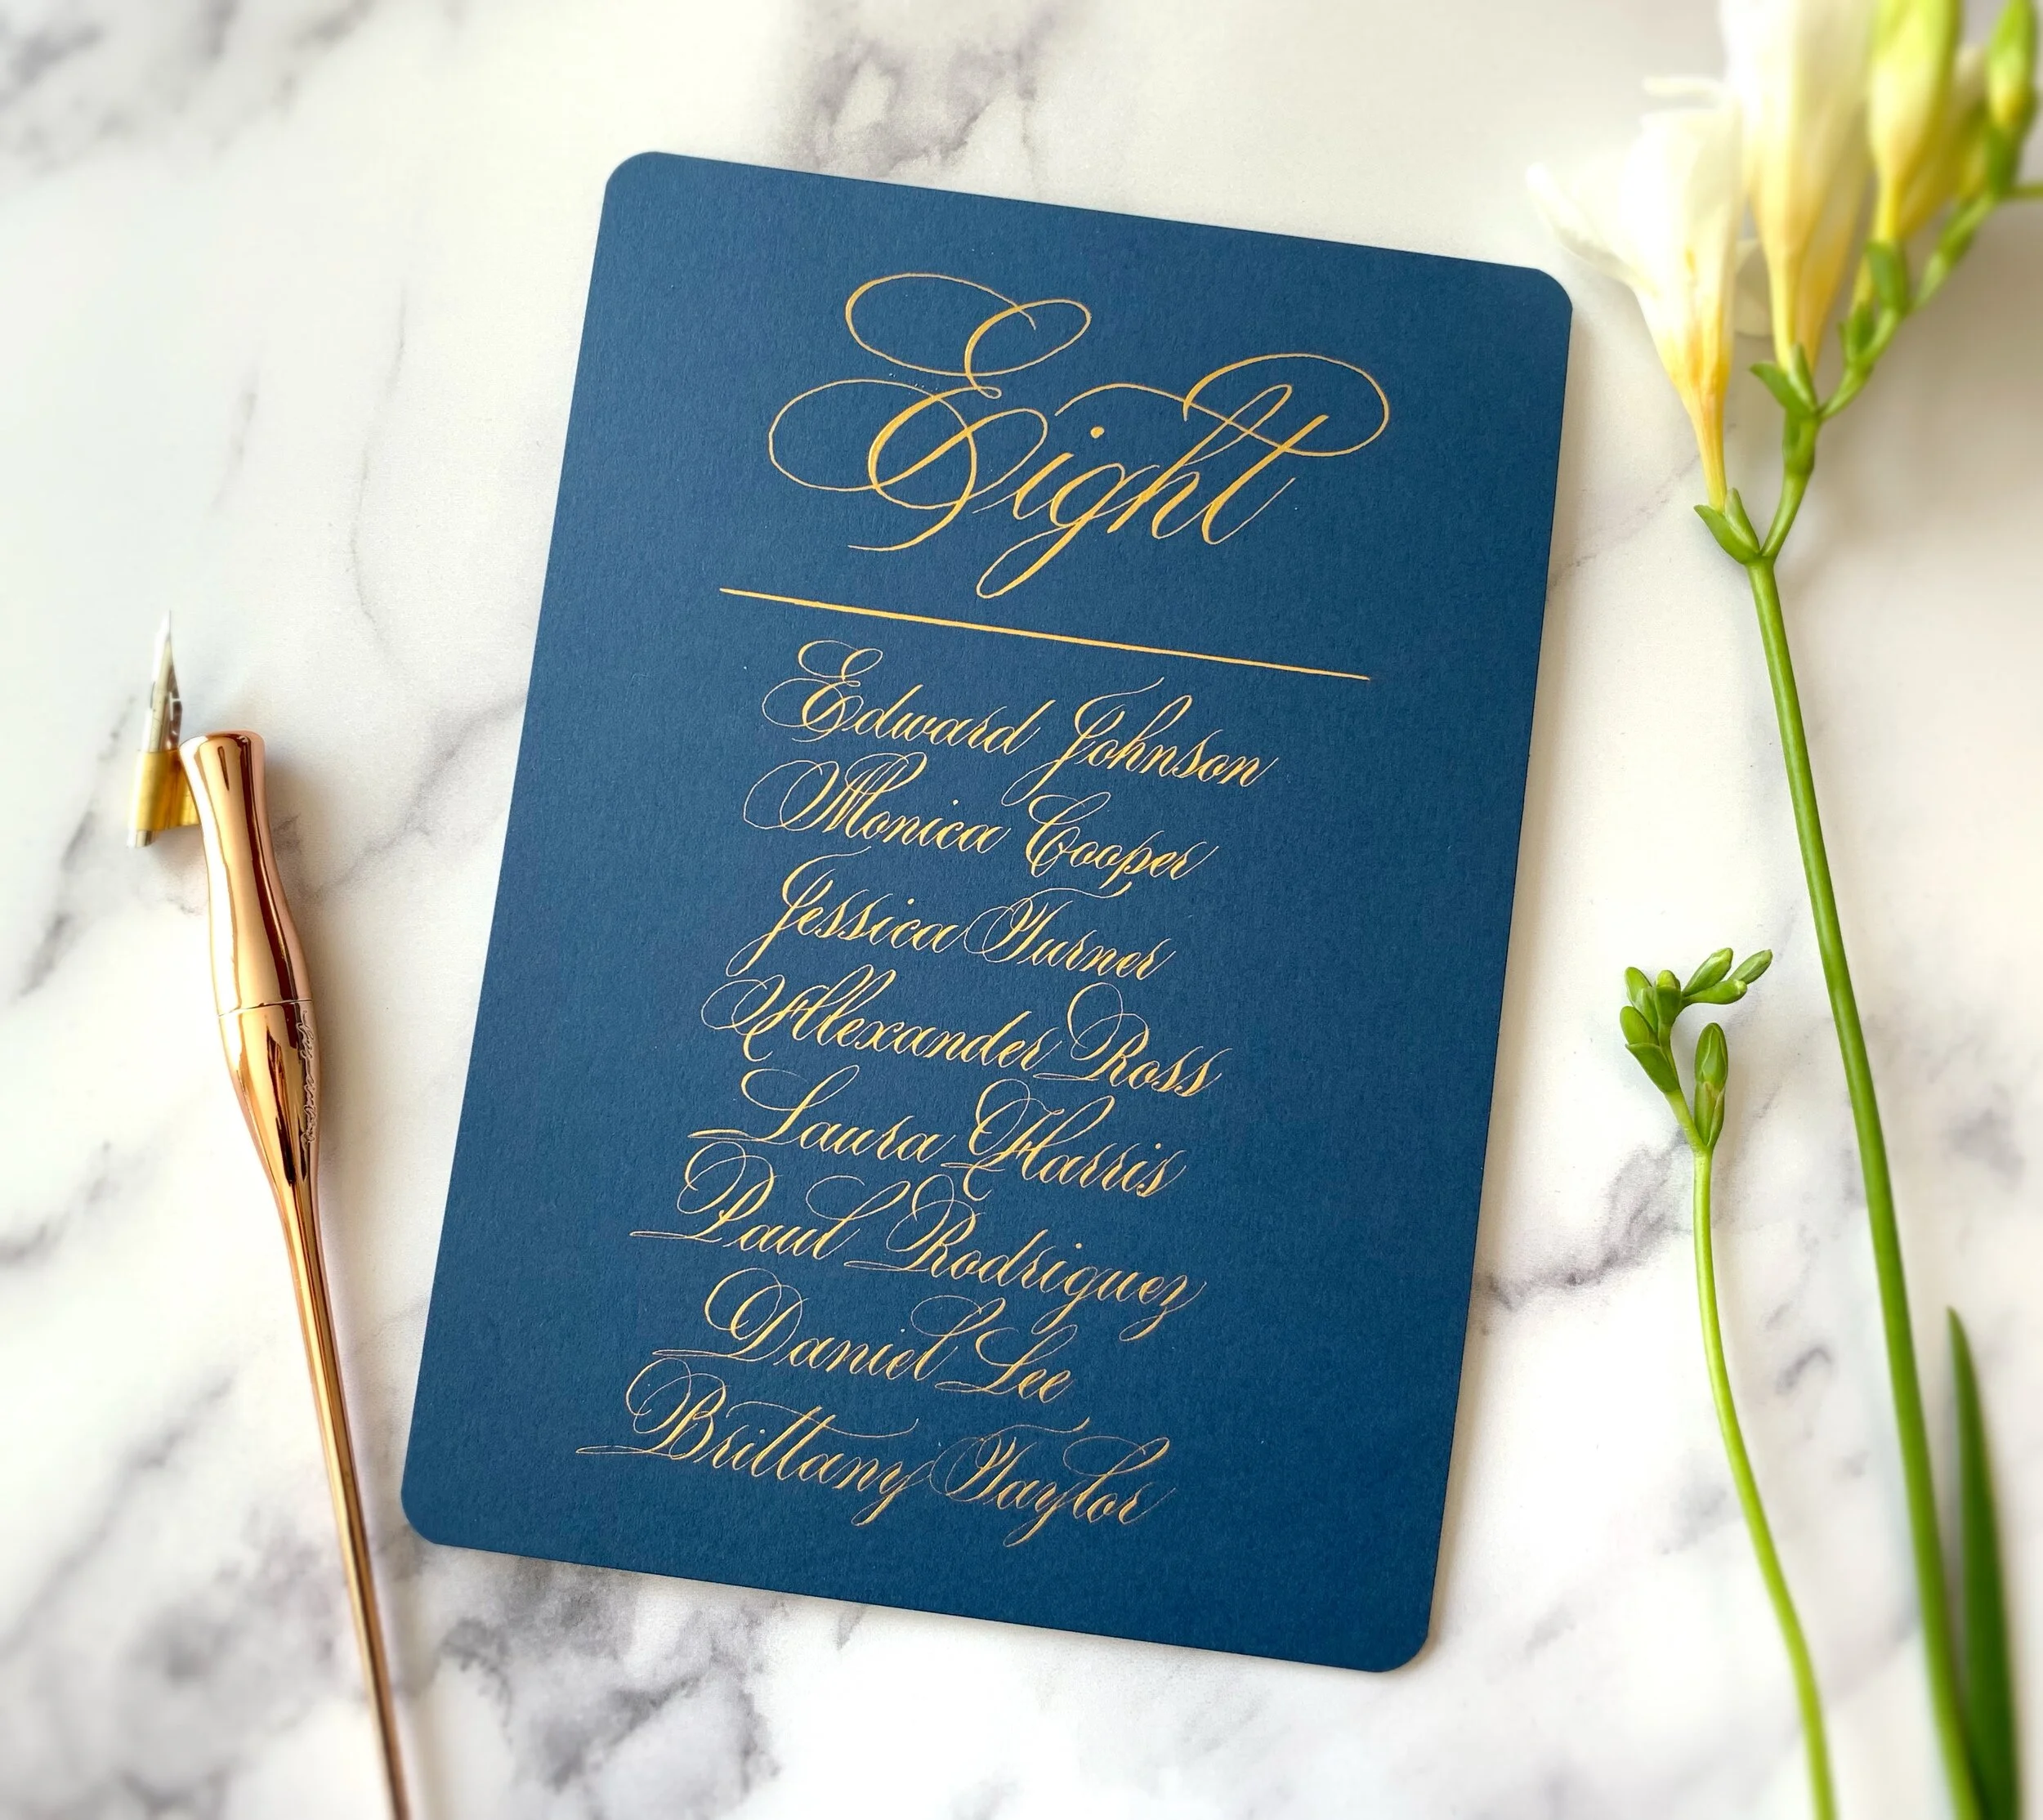 Eight
Edward Johnson
Monica Cooper
Jessica Turner
Alexander Ross
Laura Harris
Paul Rodriguez
Daniel Lee
Brittany Taylor